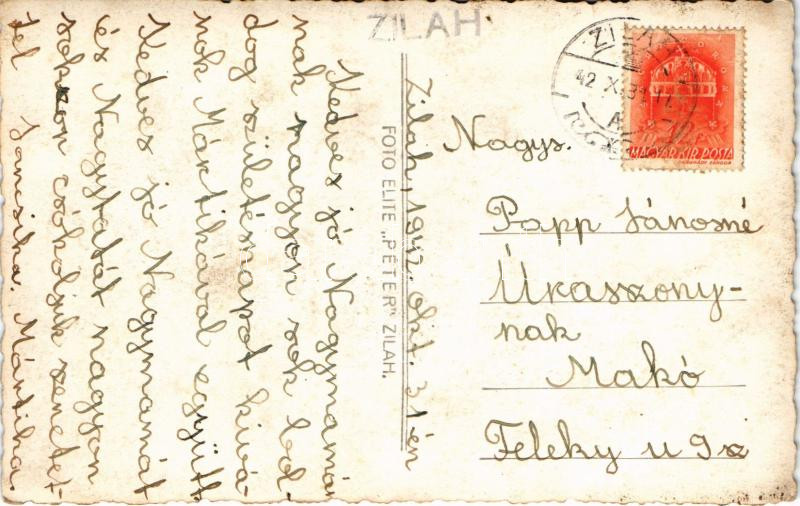 ZILAH
Zilah, 1942. okt. 31én
Kedves jó Nagymamá-
nak nagyon sok bol-
dog születésnapot kivá-
nok Mártikával együtt
Kedves jó Nagymamát
és Nagytatát nagyon
sokszor csókoljuk szeretet-
tel Jancsika. Mártika.
FOTO ELITE „PÉTER” ZILAH.
ZILAH
42 X. 31
MAGYAR KIR. POSTA
Nagys.
Papp Jánosné
Úrasszony-
nak
Makó
Feleky u 9 sz